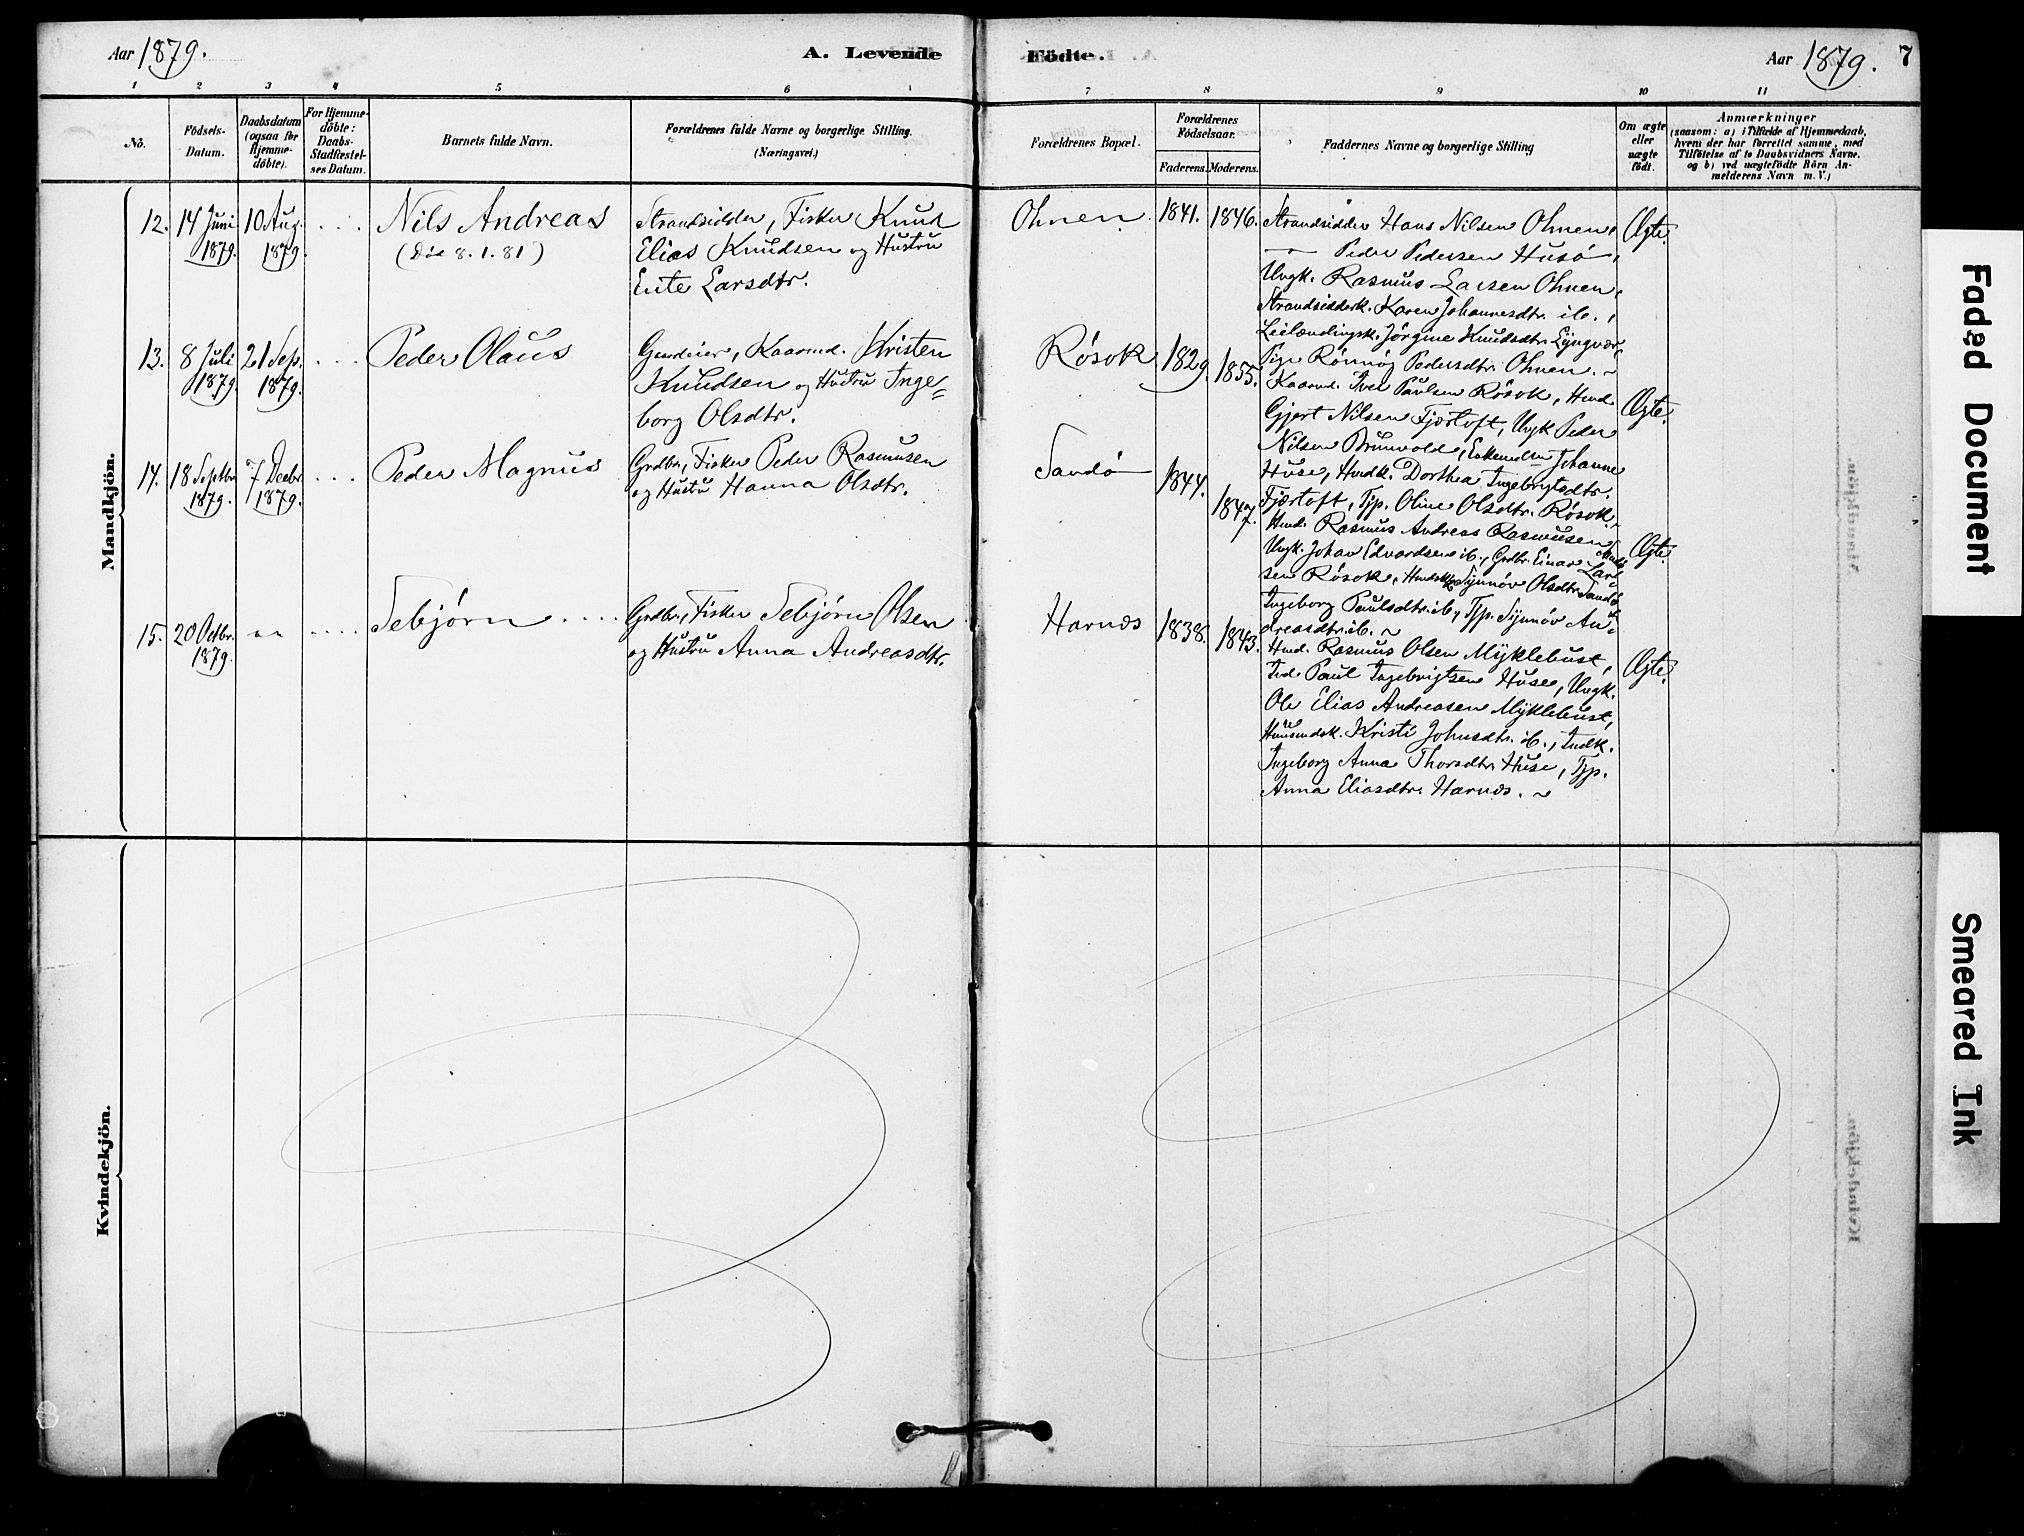 Aar 1879.
A. Levende
Födte.
Aar 1879. 7
1 2 3 4 5 6 7 8 9 10 11
No.
Födsels-
Datum.
Daabsdatum
(ogsaa for
Hjemme-
döbte).
For Hjemme-
döbte:
Daabs-
Stadfæstel-
ses Datum.
Barnets fulde Navn.
Forældrenes fulde Navne og borgerlige Stilling.
(Næringsvei.)
Forældrenes Bopæl.
Forældrenes
Födselsaar.
Faderens. Moderens.
Faddernes Navne og borgerlige Stilling
Om ægte
eller
uægte
födt.
Anmærkninger
(saasom: a) i Tilfælde af Hjemmedaab,
hvem der har forrettet samme, med
Tilföielse af to Daabsvidners Navne,
og b) ved uægtefödte Börn An-
melderens Navn m. V.)
Mandkjön.
12. 14 Juni
1879.
10 Aug.
1879.
Nils Andreas
(Död 8.1.81)
Strandsidder, Fisker Knud
Elias Knudsen og Hustru
Larsdtr.
Ohnen. 1841. 1846.
Strandsidder Hans Nilsen Ohnen,
— Peder Pedersen Husö,
Ungk. Rasmus Larsen Ohnen,
Strandsidderk. Karen Johannesdtr. ib.,
Leilændingsk. Jörgine Knudsdtr. Lyngvær
Pige Rönnög Pedersdtr. Ohnen. ~
Ægte.
13. 8 Juli
1879
21 Sep.
1879.
Peder Olaus
Gaardeier, Kaarmd. Kristen
Knudsen og Hustru Inge=
borg Olsdtr.
Rösok. 1829. 1855.
Kaarmd. Iver Paulsen Rösok, Hmd.
Gjert Nilsen Fjærtoft, Ungk Peder
Nilsen Brunvold, Johanne
Huse, Hmdk. Dorthea Ingebrigtsdtr.
Fjærtoft, Tjp. Oline Olsdtr. Rösok.
Ægte.
14. 18 Septbr.
1879.
7 Decbr.
1879.
Peder Magnus
Grdbr, Fisker Peder Rasmusen
og Hustru Hanna Olsdtr.
Sandö 1844. 1847.
Hmd. Rasmus Andreas Rasmusen
Ungk. Johan Edvardsen ib., Grdbr. Einar Lar=
sen Rösok, Synnöv Olsdtr. Sandö
Ingeborg Paulsdtr. ib, Tjp. Synnöv An=
dreasdtr. ib. ~
Ægte.
15. 20 Octbr.
1879.
Sebjørn
Grdbr, Fisker Sebjörn Olsen
og Hustru Anna Andreasdtr.
Harnæs 1838. 1843.
Hmd. Rasmus Olsen Myklebust,
Ind. Paul Ingebrigtsen Huse, Ungk.
Ole Elias Andreasen Myklebust,
Huusmdsk. Kristi Johnsdtr. ib., Indk.
Ingeborg Anna Thorsdtr. Huse, Tjp.
Anna Eliasdtr. Harnæs. ~
Ægte.
Kvindekjön.
Faded Document
Smeared Ink